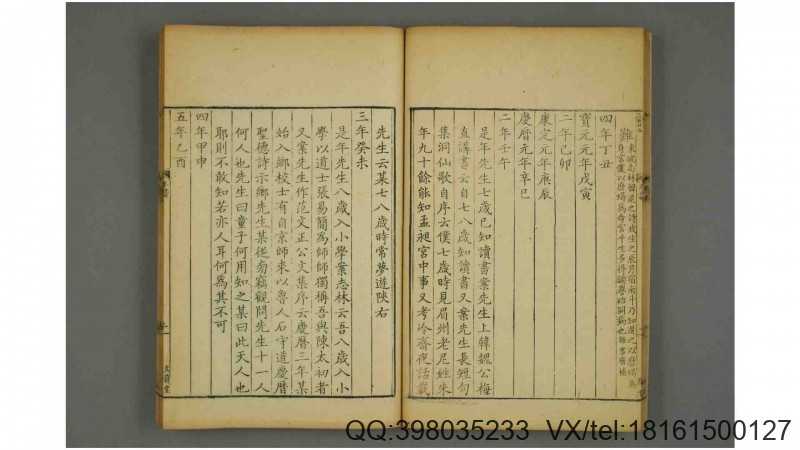 四年丁丑
寶元元年戊寅
二年己卯
康定元年庚辰
慶曆元年辛巳
二年壬午
是年先生七歲已知讀書案先生上韓魏公梅
直講書云自七八歲知讀書又案先生長短句
集洞仙歌自序云僕七歲時見眉州老尼姓朱
年九十餘能知孟昶宮中事又考冷齋夜話載
先生云某七八歲時常夢遊陝右
三年癸未
是年先生八歲入小學案志林云吾八歲入小
學以道士張易簡為師師獨稱吾與陳太初者
又案先生作范文正公文集序云慶曆三年某
始入鄉校士有自京師來以魯人石守道慶曆
聖德詩示鄉先生某從旁竊觀問先生十一人
何人也先生曰童子何用知之某曰此天人也
耶則不敢知若亦人耳何為其不可
四年甲申
五年乙酉
QQ:398035233 VX/tel:18161500127